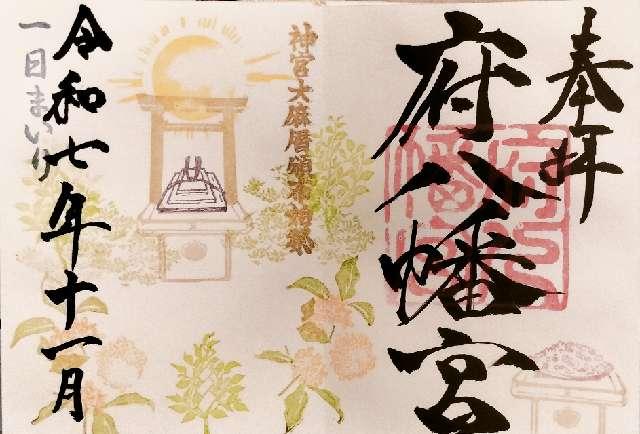 奉拝
府八幡宮
神宮大麻暦頒布始祭
令和七年十一月
一日まいり